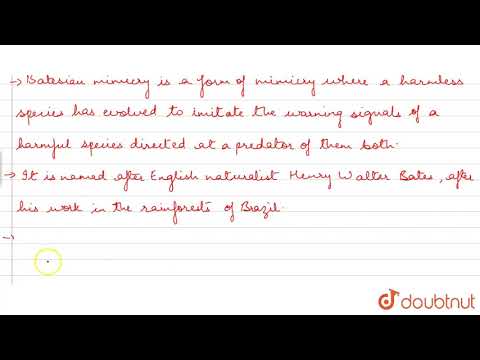 → Batesian mimicry is a form of mimicry where a harmless
species has evolved to imitate the warning signals of a
harmful species directed at a predator of them both.
→ It is named after English naturalist Henry Walter Bates, after
his work in the rainforests of Brazil.
→
doubtnut